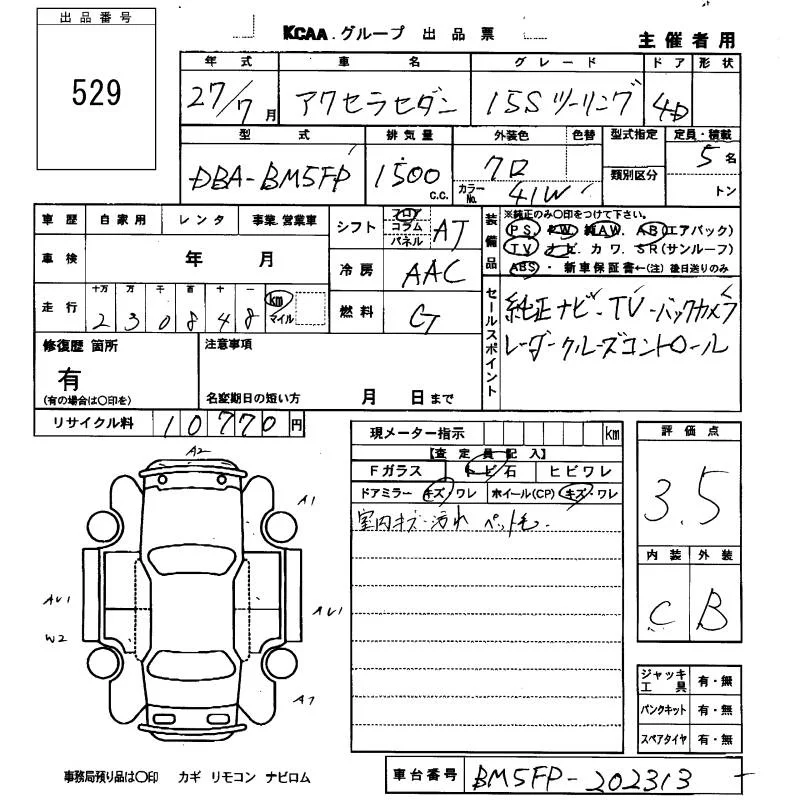 出品番号
529
KCAA.グループ 出品票
主催者用
年式 車名 グレード ドア 形状
27/7月 アクセラセダン 15Sツーリング 4D
型式 排気量 外装色 色替 型式指定 定員・積載
DBA-BM5FP 1500 c.c. クロ カラーNo. 41W 類別区分 5名
トン
車歴 自家用 レンタ 事業.営業車
車検 年 月
走行 十万 万 千 百 十 一
230848 km マイル
シフト フロア コラム パネル AT
冷房 AAC
燃料 G
装備品 ※純正のみ〇印をつけて下さい。
PS. PW. 純AW. AB(エアバック)
TV ナビ. カワ. SR(サンルーフ)
ABS ・ 新車保証書←(注) 後日送りのみ
セールスポイント
純正ナビ-TV-バックカメラ
レーダークルーズコントロール
修復歴 箇所
有
(有の場合は〇印を)
注意事項
名変期日の短い方 月 日まで
リサイクル料 10770円
現メーター指示 km
【査定員記入】
Fガラス トビ石 ヒビワレ
ドアミラー キズ・ワレ ホイール(CP) キズ・ワレ
室内キズ・汚れ ペット毛-
評価点
3.5
内装 外装
C B
A2
A1
AU1
W2
AU1
A7
ジャッキ工具 有・無
パンクキット 有・無
スペアタイヤ 有・無
事務局預り品は〇印 カギ リモコン ナビロム
車台番号 BM5FP-202313